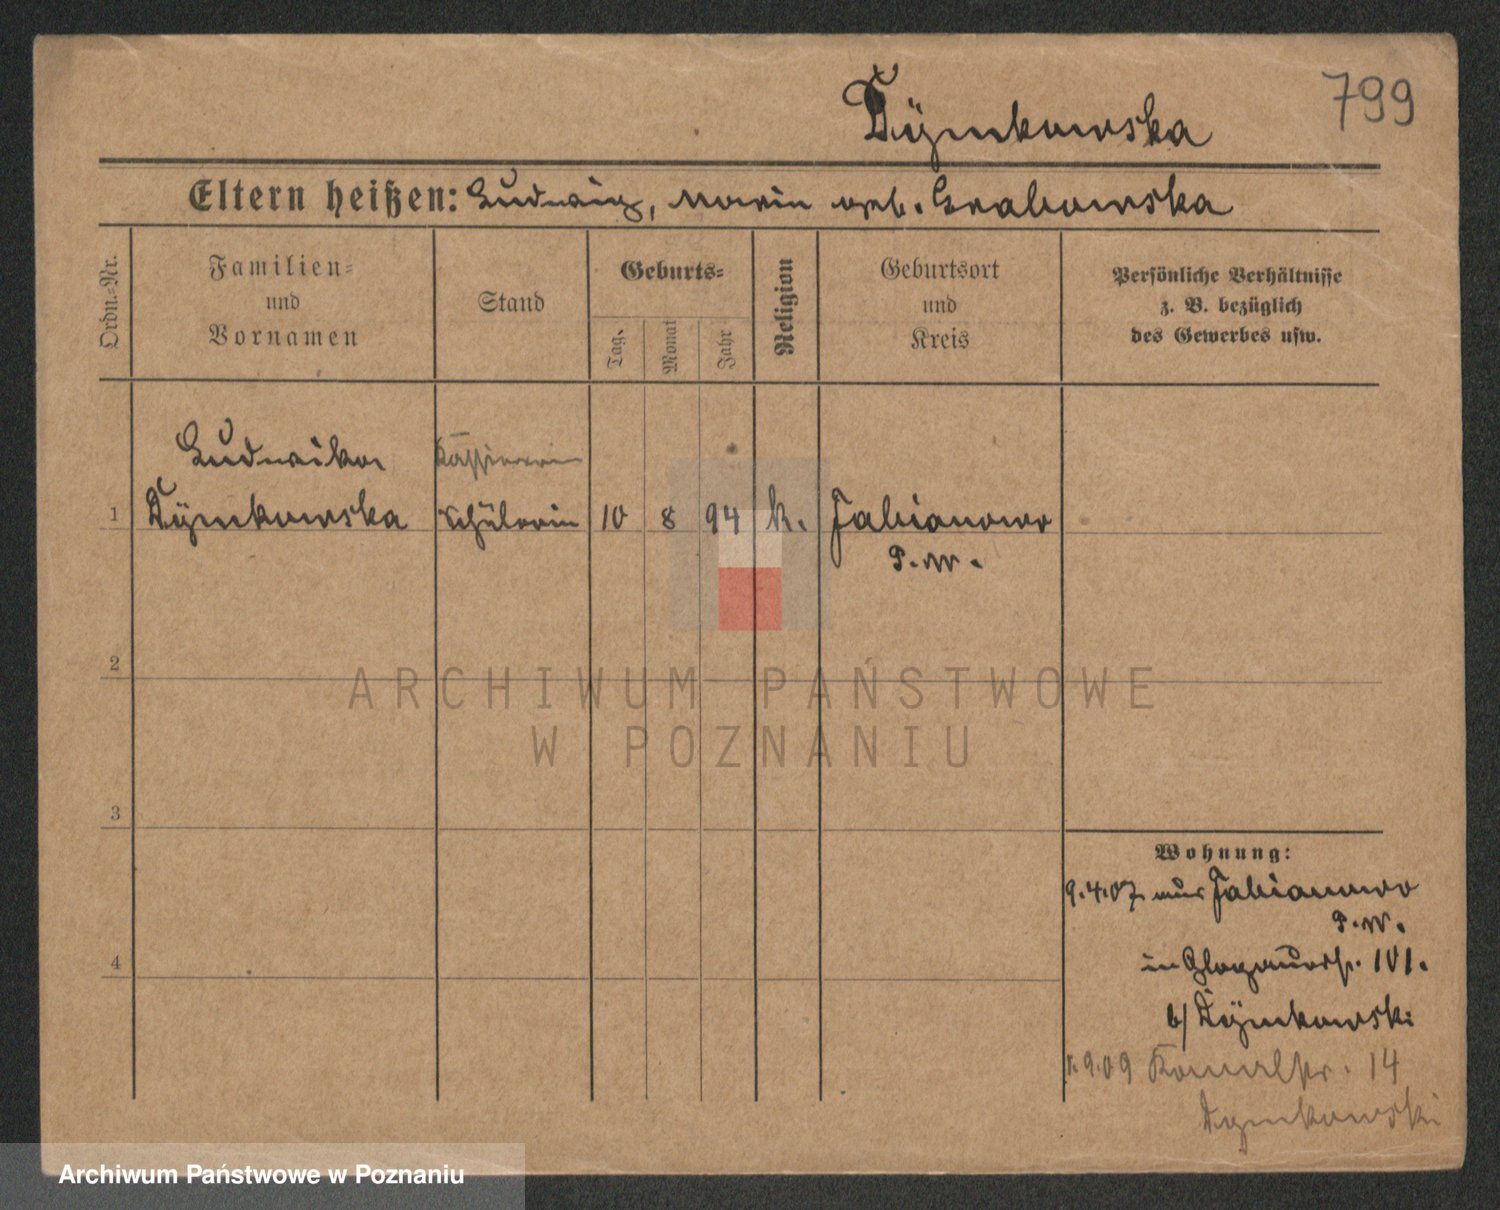 799
Dÿmkowska
Eltern heißen: Ludwig, Marie geb. Grabowska
Ordn.=Nr.
Familien=
und
Vornamen
Stand
Geburts=
Tag.
Monat
Jahr
Religion
Geburtsort
und
Kreis
Persönliche Verhältnisse
z. B. bezüglich
des Gewerbes usw.
Ludwika
Kassiererin
1 Dÿmkowska Schülerin 10 8 94 k. Fabianowo
P. W.
2
3
4
Wohnung:
9.4.07 aus Fabianowo
P. W.
in Glogauerstr. 101.
b/ Dÿmkowski
1.9.09 14
Dymkowski
ARCHIWUM PAŃSTWOWE
W POZNANIU
Archiwum Państwowe w Poznaniu